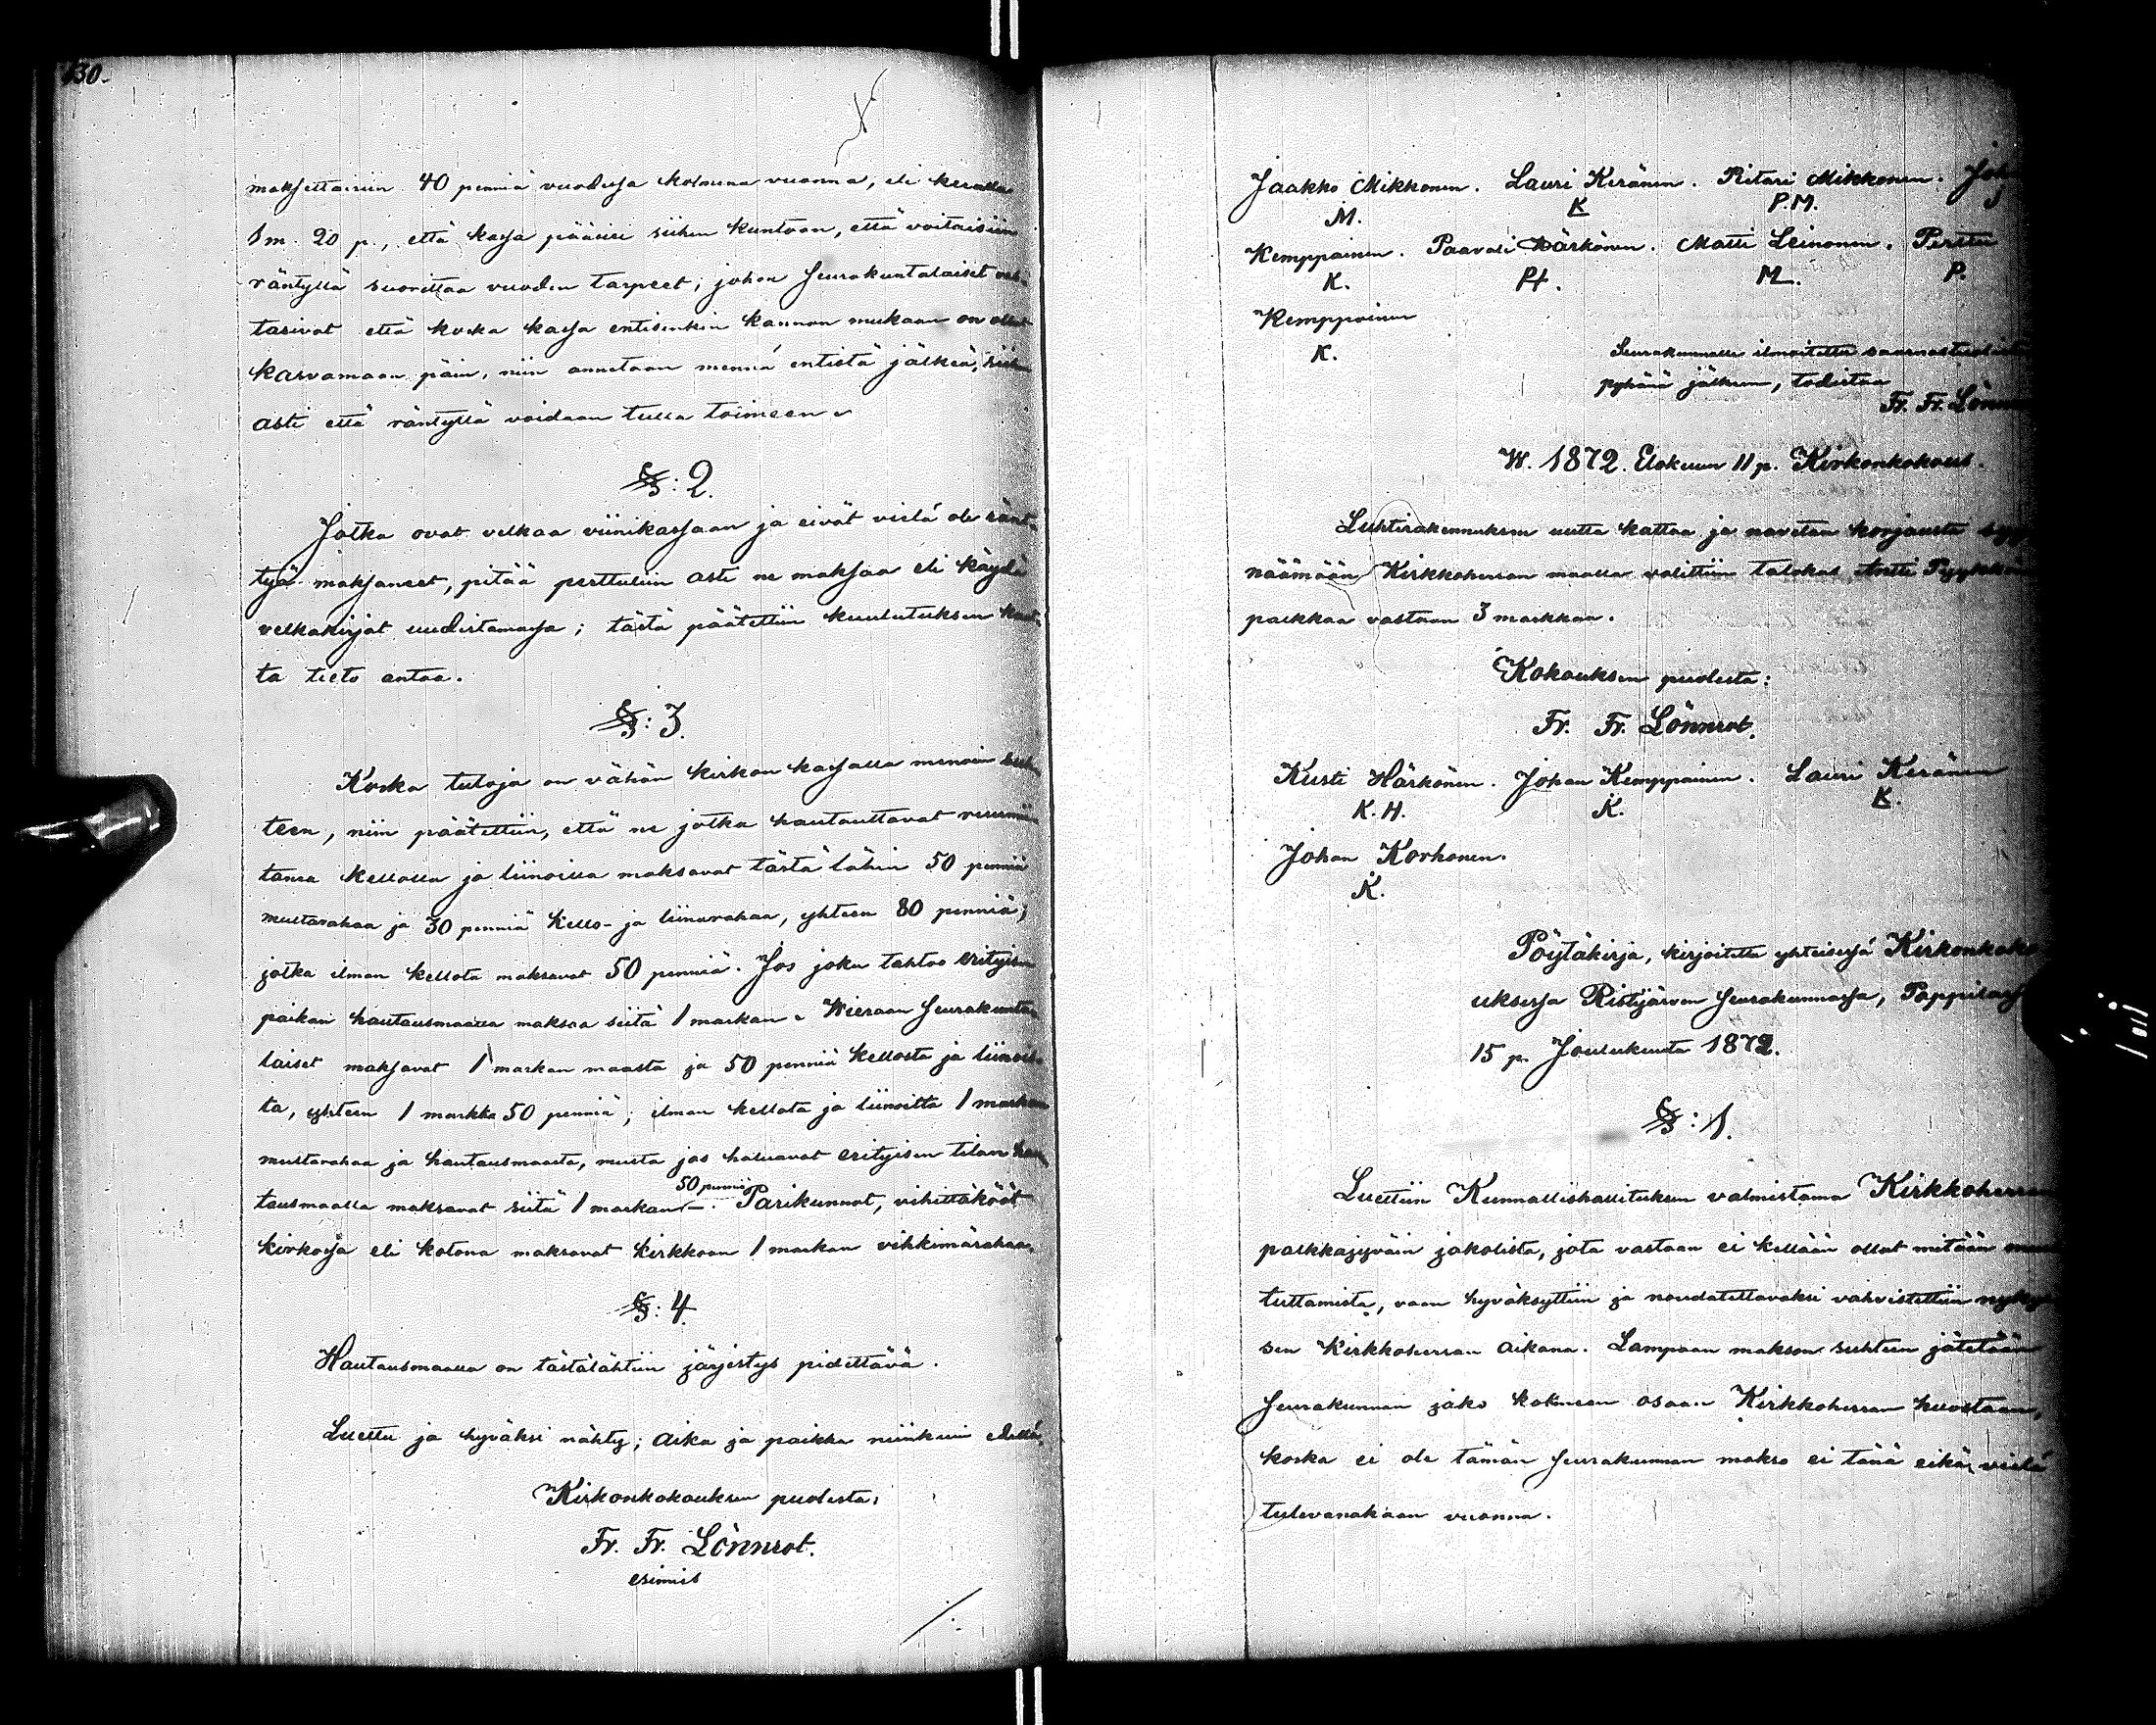 130.
maksettaisiin 40 penniä vuodessa kolmena vuonna, eli kerralla
1 m. 20 p., että kassa pääsisi siihen kuntoon, että voitaisiin
räntyllä suorittaa vuoden tarpeet; johon Seurakuntalaiset vas-
tasivat että koska kassa entisenkin kannon mukaan on ollut
karvamaan päin, niin annetaan mennä entistä jälkeä, siihen
asti että räntyllä voidaan tulla toimeen.
§: 2.
Jotka ovat velkaa viinikassaan ja eivät vielä ole ränt-
tyä maksaneet, pitää perttuliin asti ne maksaa eli käydä
velkakirjat uudistamassa; tästä päätettiin kuulutuksen kaut-
ta tieto antaa.
§: 3.
Koska tuloja on vähän kirkon kassalla menoin suh-
teen, niin päätettiin, että ne jotka hautauttavat ruumiin
tansa kellolla ja liinoilla maksavat tästä lähin 50 penniä
multarahaa ja 30 penniä kello- ja liinarahaa, yhteen 80 penniä;
jotka ilman kellota maksavat 50 penniä. Jos joku tahtoo erityisen
paikan hautausmaalla maksaa siitä 1 markan. Wieraan Seurakunta-
laiset maksavat 1 markan maasta ja 50 penniä kellosta ja liinois-
ta, yhteen 1 markka 50 penniä; ilman kellota ja liinoitta 1 markan
multarahaa ja hautausmaasta, mutta jos haluavat erityisen tilan hau-
50 penniä
tausmaalla maksavat siitä 1 markan –. Parikunnat, vihittäkööt
kirkossa eli kotona maksavat kirkkoon 1 markan vihkimärahaa.
§: 4.
Hautausmaalla on tästälähtiin järjestys pidettävä.
Luettu ja hyväksi nähty; aika ja paikka niinkuin edellä.
Kirkonkokouksen puolesta:
Fr. Fr. Lönnrot.
esimies
Jaakko Mikkonen. Lauri Keränen. Pietari Mikkonen. Joh
M. K P.M. J
Kemppainen. Paavali Härkönen. Matti Leinonen. Perttu
K. PH. M. P.
Kemppainen
K.
Seurakunnalle ilmoitettu saarnastuolista
pyhänä jälkeen, todistaa
Fr. Fr. Lönnrot
W. 1872. Elokuun 11 p. Kirkonkokous.
Luhtirakennuksen uutta kattoa ja navetan korjausta
näämään Kirkkoherran maalla valittiin talokas Antti Pyykkönen
palkkaa vastaan 3 markkaa.
Kokouksen puolesta:
Fr. Fr. Lönnrot.
Kusti Härkönen. Johan Kemppainen. Lauri Keränen
K.H. K. K.
Johan Korhonen.
K.
Pöytäkirja, kirjoitettu yhteisessä Kirkonkoko
uksessa Ristijärven Seurakunnassa, Pappilassa
15 p. Joulukuuta 1872.
§: 1.
Luettiin Kunnallishallituksen valmistama Kirkkoherran
palkkajyväin jakolista, jota vastaan ei kellään ollut mitään muis
tuttamista, vaan hyväksyttiin ja noudatettavaksi vahvistettiin nykyi
sen Kirkkoherran aikana. Lampaan makson suhteen jätetään
Seurakunnan jako kolmeen osaan Kirkkoherran huostaan,
koska ei ole tämän Seurakunnan makso ei tänä eikä vielä
tulevanakaan vuonna.